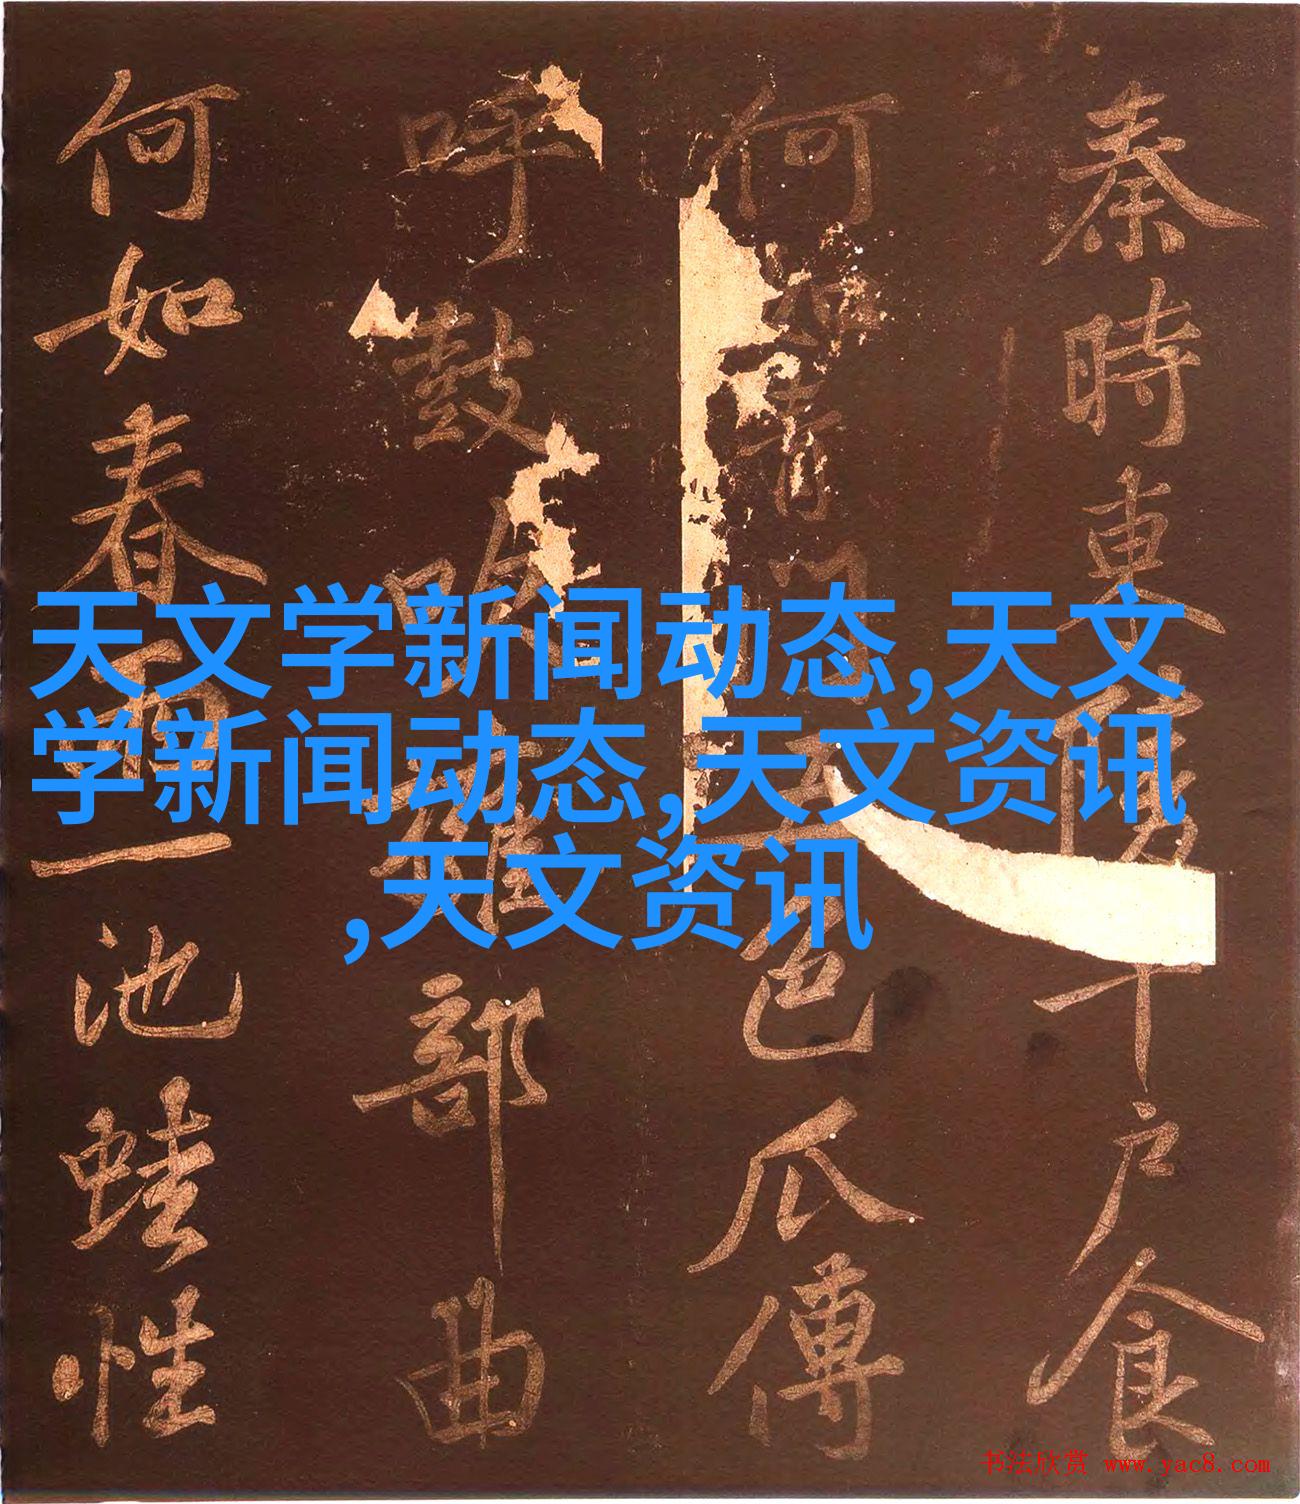 秦時東陵千戶食
何如青門五色瓜傅
呼鼓吹雜部曲
何如春雨一池蛙性
天文学新闻动态,天文
学新闻动态,天文资讯
,天文资讯
书法欣赏 www.yac8.com